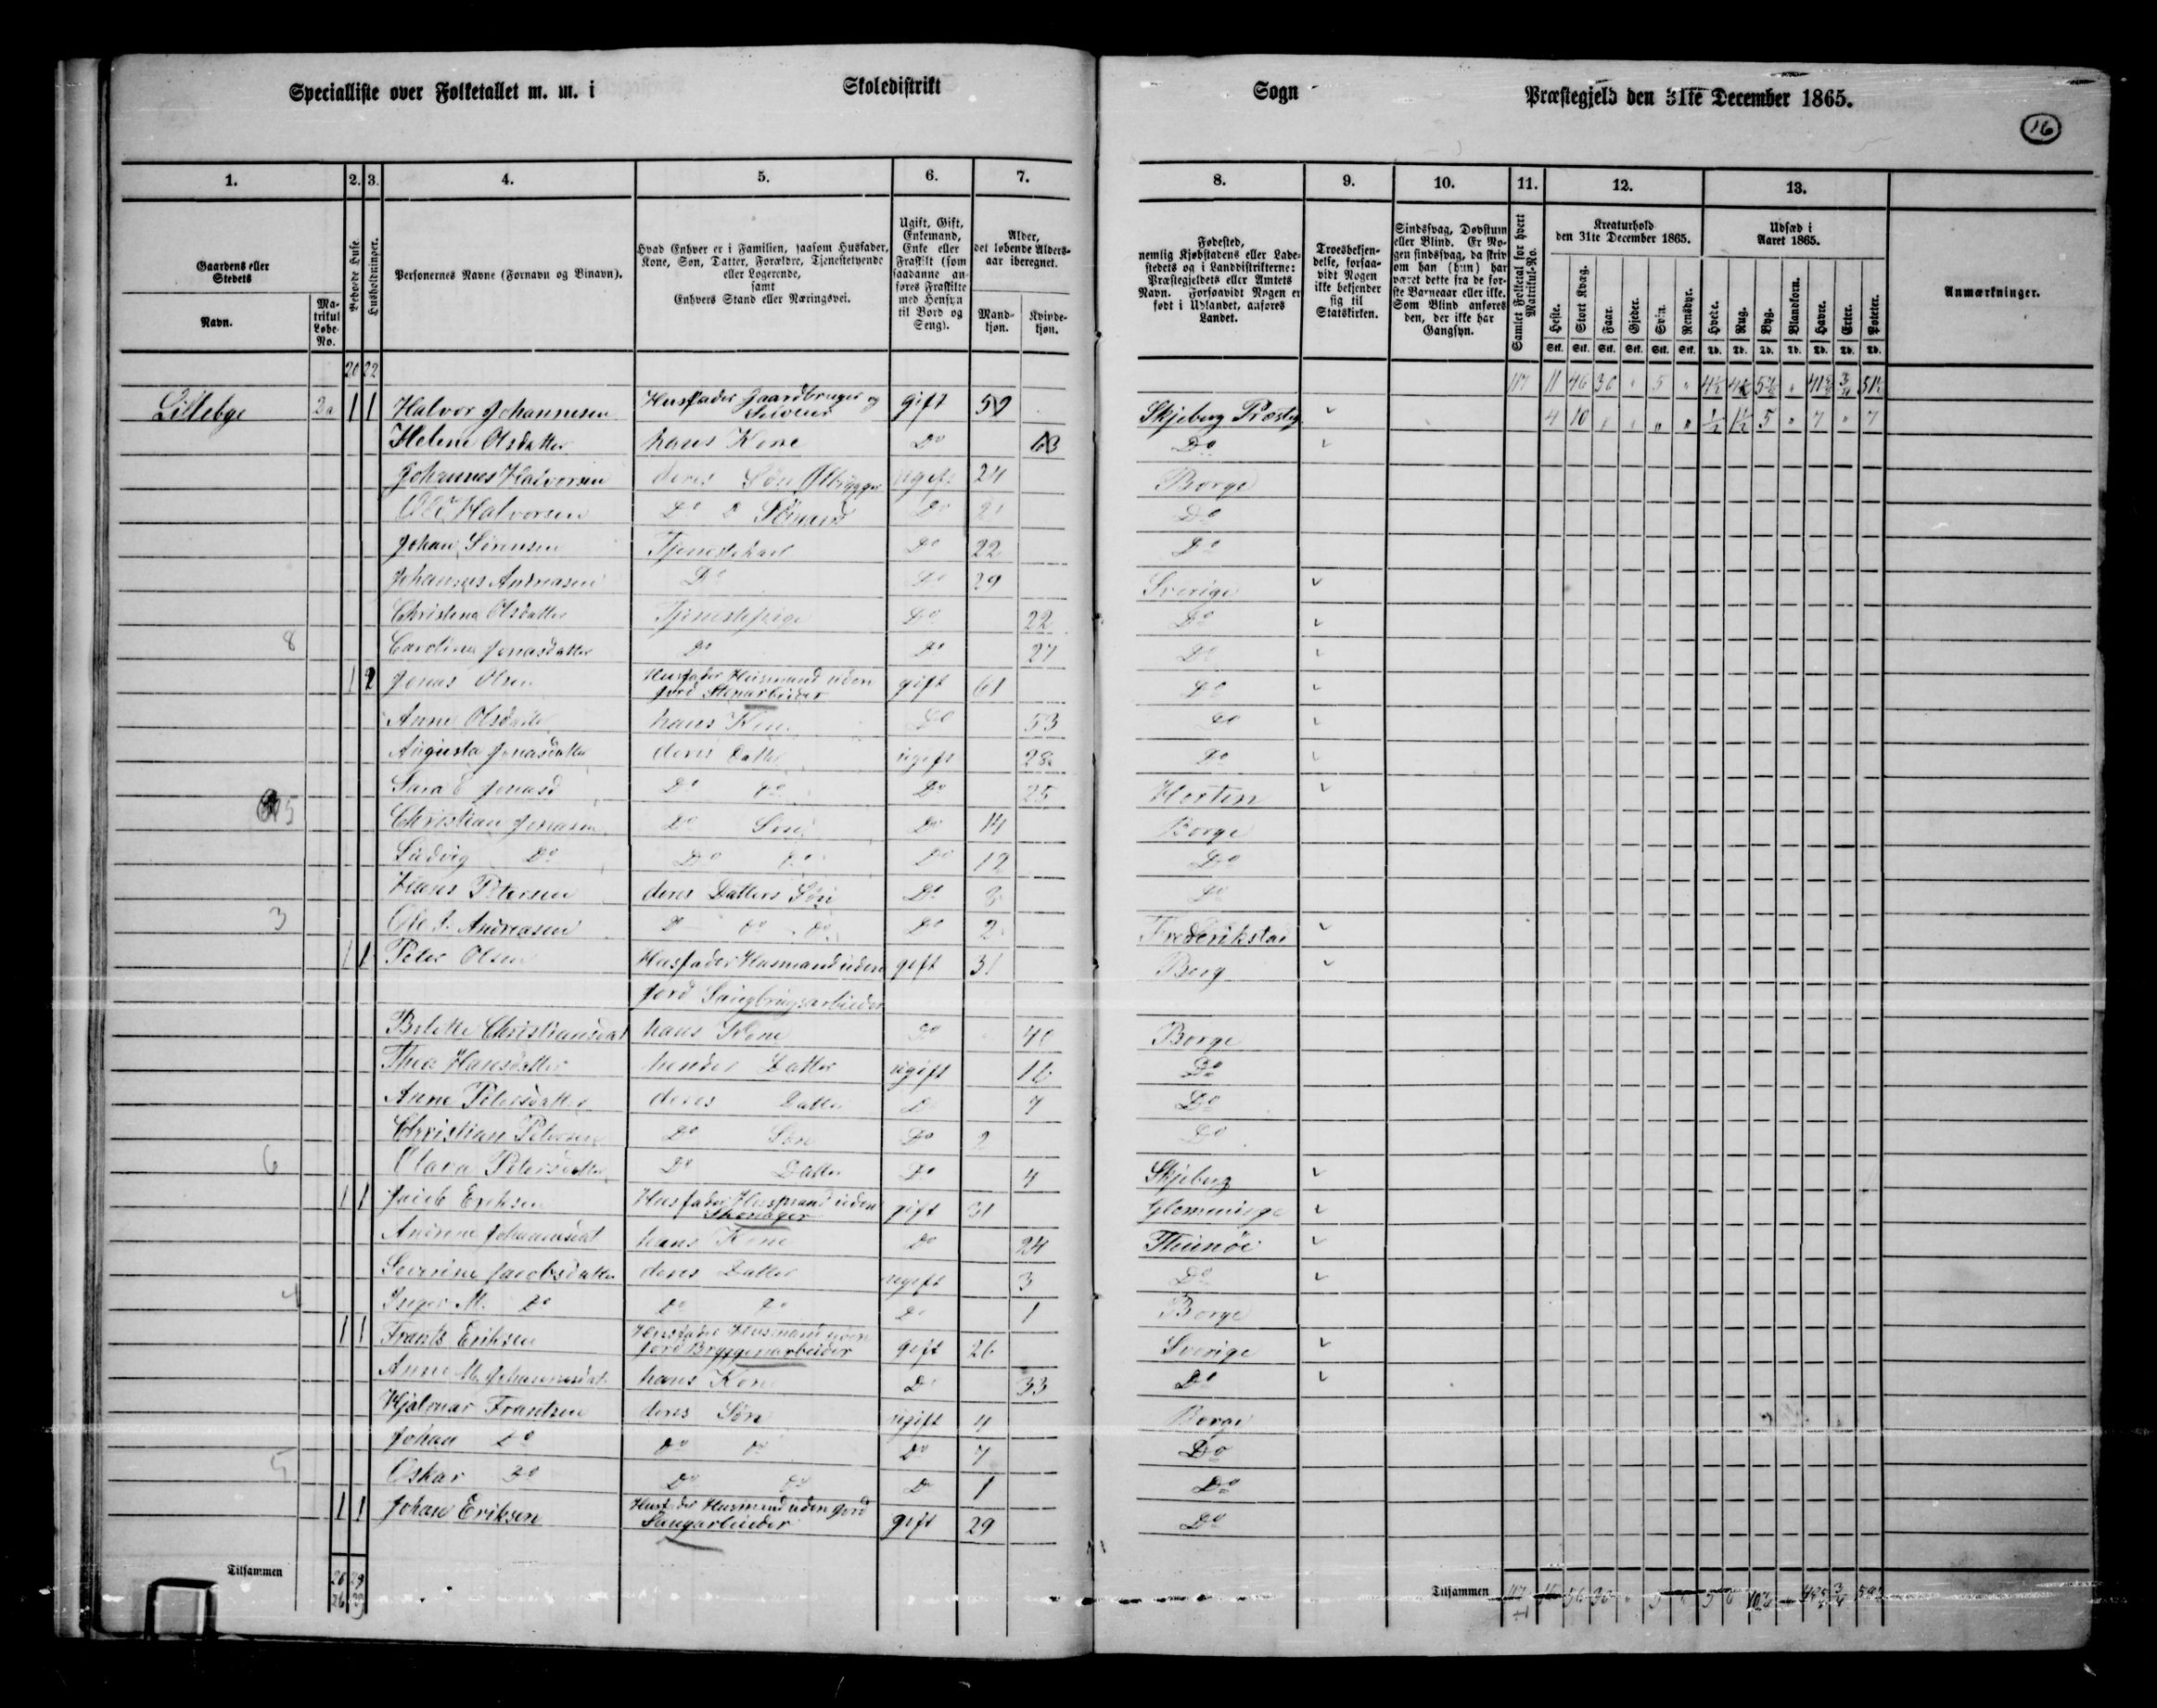 Specialliste over Folketallet m. m. i Skoledistrikt Sogn Præstegjeld den 31te December 1865.
16
1. 2. 3. 4. 5. 6. 7. 8. 9. 10. 11. 12. 13.
Gaardens eller Stedets
Navn.
Matrikul Løbe-No.
Beboede Huse.
Husholdninger.
Personernes Navne (Fornavn og Binavn).
Hvad Enhver er i Familien, saasom Husfader, Kone, Søn, Datter, Forældre, Tjenestetyende eller Logerende, samt Enhvers Stand eller Næringsvei.
Ugift, Gift, Enkemand, Enke eller Fraskilt (som saadanne anføres Fraskilte med Hensyn til Bord og Seng).
Alder, det løbende Aldersaar iberegnet.
Mandkjøn. Kvindekjøn.
Fødested, nemlig Kjøbstadens eller Ladestedets og i Landdistrikterne: Præstegjeldets eller Amtets Navn. Forsaavidt Nogen er født i Udlandet, anføres Landet.
Troesbekjendelse, forsaavidt Nogen ikke bekjender sig til Statskirken.
Sindssvag, Døvstum eller Blind. Er Nogen sindssvag, da skriv om han (hun) har været dette fra de første Barneaar eller ikke. Som Blind anføres den, der ikke har Gangsyn.
Samlet Folketal for hvert Matrikul-No.
Kreaturhold den 31te December 1865.
Heste. Stort Kvæg. Faar. Gjeder. Svin. Rensdyr.
Stk. Stk. Stk. Stk. Stk. Stk.
Udsæd i Aaret 1865.
Hvede. Rug. Byg. Blandkorn. Havre. Erter. Poteter.
Td. Td. Td. Td. Td. Td. Td.
Anmærkninger.
20 22 117 11 46 30 " 5 "
Lillebye 2a 1 1 Halvor Johannesen Husfader Gaardbruger og gift 59 Skjeberg Præstg. 4 10 " " " " ½ 1½ 5 " 7 " 7
Helene Olsdatter hans Kone Do 63 Do
Johannes Halvorsen deres Søn ugift 24 Borge
Ole Halvorsen Do Do Sømand Do 21 Do
Johan Sørensen Tjenestekarl Do 22 Do
Johannes Andreasen Do Do 29 Sverige
Christina Olsdatter Tjenestepige Do 22 Do
8 Carolina Jonasdatter Do Do 27 Do
1 2 Jonas Olsen Husfader Husmand uden gift 61 Do
Jord Stenarbeider
Anne Olsdatter hans Kone Do 53 Do
Augusta Jonasdatter deres Datter ugift 28 Do
Sara Jonasd Do Do Do 25 Horten
Christian Jonasen Do Søn Do 14 Borge
Ludvig Do Do Do Do 12 Do
Hans Petersen deres Datters Søn Do 3 Do
3 Ole A. Andreasen Do Do Do Do 2 Frederikstad
1 1 Peter Olsen Husfader Husmand uden gift 31 Berg
Jord Saugbrugsarbeider
Bolette Christiansdat hans Kone Do Borge
Thea Hansdatter hendes Datter ugift Do
Anne Petersdatter deres Datter Do 7 Do
Christian Petersen Do Søn Do 2 Do
6 Olava Petersdatter Do Datter Do 4 Skjeberg
1 1 Jacob Eriksen Husfader Husmand uden gift 31 Glemminge
Skomager
Andrine Johannesdat hans Kone Do 24 Thunøe
Severine Jacobsdatter deres Datter ugift 3 Do
4 Inger M. Do Do Do Do 1 Borge
1 1 Frants Eriksen Husfader Husmand uden gift 26 Sverige
Jord Bryggeriarbeider
Anne M. Johannesdat hans Kone Do 33 Do
Hjalmar Frantsen deres Søn ugift 4 Borge
Johan Do Do Do Do 7 Do
5 Oskar Do Do Do Do 1 Do
1 1 Johan Eriksen Husfader Husmand uden Jord gift 29 Do
Saugarbeider
Tilsammen 26 29 Tilsammen 117
26 29